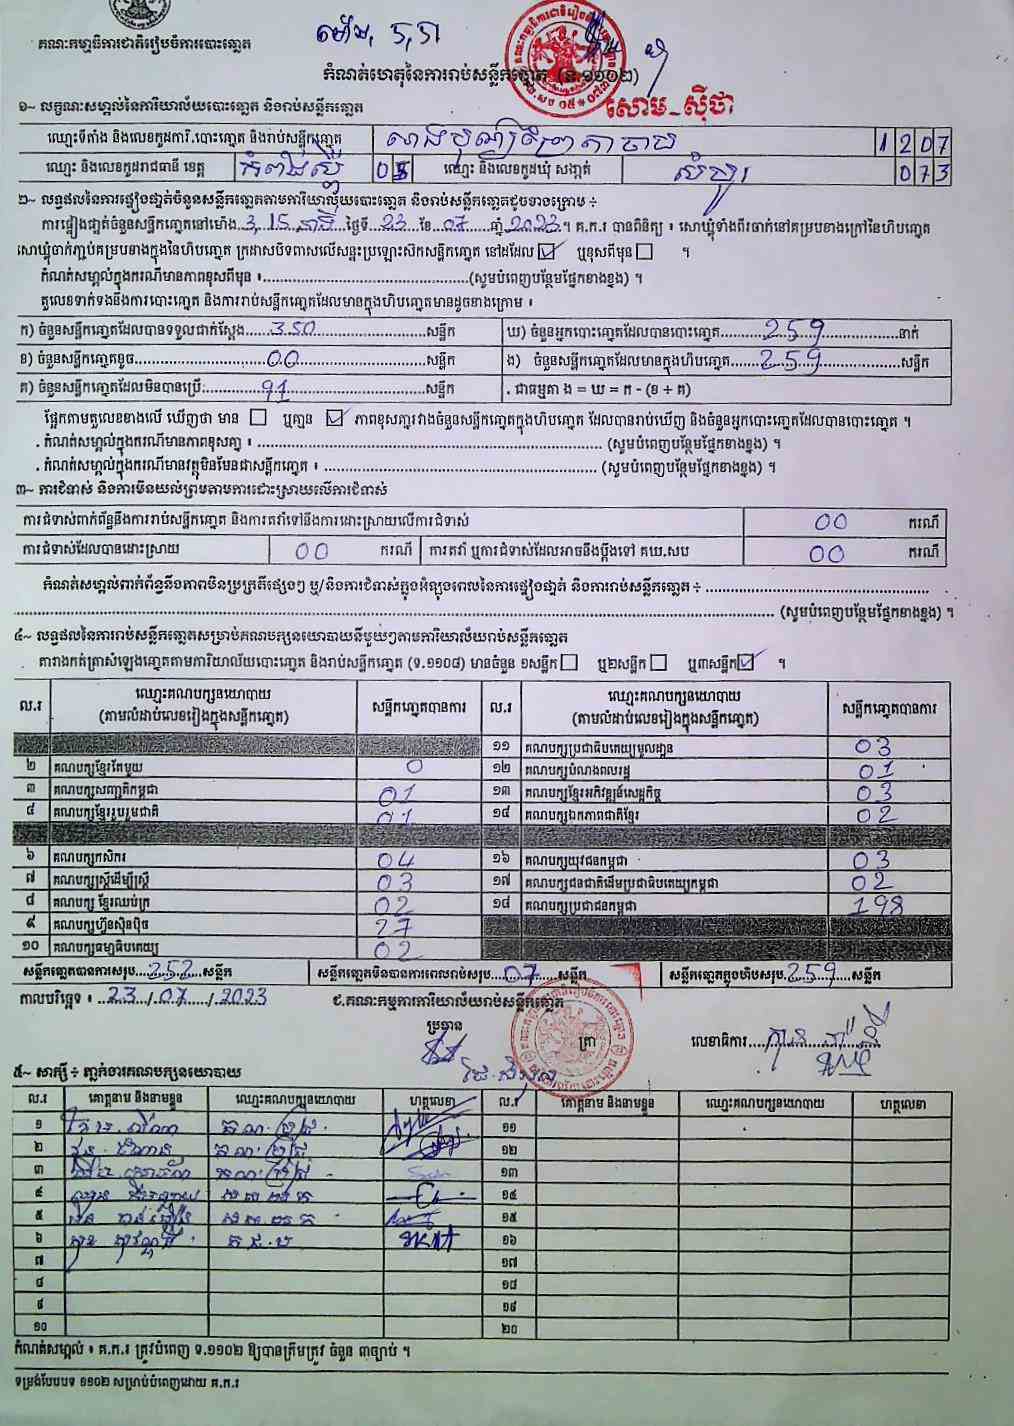 គណៈកម្មាធិការជាតិរៀបចំការបោះឆ្នោត
ម៉ោង, ៦,៥៣
កំណត់ហេតុនៃការរាប់សន្លឹកឆ្នោត (ទ.១១០២)
សោម-ស៊ីថា
១~ លក្ខណៈសម្គាល់នៃការិយាល័យបោះឆ្នោត និងរាប់សន្លឹកឆ្នោត
ឈ្មោះទីតាំង និងលេខកូដការិ.បោះឆ្នោត និងរាប់សន្លឹកឆ្នោត 1207
ឈ្មោះ និងលេខកូដរាជធានី ខេត្ត កំពង់ស្ពឺ 05 ឈ្មោះ និងលេខកូដឃុំ សង្កាត់ 073
២~ លទ្ធផលនៃការផ្ទៀងផ្ទាត់ចំនួនសន្លឹកឆ្នោតតាមការិយាល័យបោះឆ្នោត និងរាប់សន្លឹកឆ្នោតដូចខាងក្រោម ÷
ការផ្ទៀងផ្ទាត់ចំនួនសន្លឹកឆ្នោតនៅម៉ោង 3,15 នាទី ថ្ងៃទី 23 ខែ 07 ឆ្នាំ 2023។ គ.ក.រ បានពិនិត្យ ៖ សោឃ្មុំទាំងពីរចាក់នៅគម្របខាងក្រៅនៃហិបឆ្នោត
សោឃ្មុំចាក់ភ្ជាប់គម្របខាងក្នុងនៃហិបឆ្នោត ក្រដាសបិទពាសលើសន្ទះប្រឡោះស៊កសន្លឹកឆ្នោត នៅដដែល ☑ ឬខុសពីមុន ☐ ។
កំណត់សម្គាល់ក្នុងករណីមានភាពខុសពីមុន ៖..........(សូមបំពេញបន្ថែមផ្នែកខាងខ្នង) ។
តួលេខទាក់ទងនឹងការបោះឆ្នោត និងការរាប់សន្លឹកឆ្នោតដែលមានក្នុងហិបឆ្នោតមានដូចខាងក្រោម ៖
ក) ចំនួនសន្លឹកឆ្នោតដែលបានទទួលជាក់ស្តែង 350 សន្លឹក ឃ) ចំនួនអ្នកបោះឆ្នោតដែលបានបោះឆ្នោត 259 នាក់
ខ) ចំនួនសន្លឹកឆ្នោតខូច 00 សន្លឹក ង) ចំនួនសន្លឹកឆ្នោតដែលមានក្នុងហិបឆ្នោត 259 សន្លឹក
គ) ចំនួនសន្លឹកឆ្នោតដែលមិនបានប្រើ: 91 សន្លឹក . ជាធម្មតា ង = ឃ = ក - (ខ + គ)
ផ្អែកតាមតួលេខខាងលើ ឃើញថា មាន ☐ ឬគ្មាន ☑ ភាពខុសគ្នារវាងចំនួនសន្លឹកឆ្នោតក្នុងហិបឆ្នោត ដែលបានរាប់ឃើញ និងចំនួនអ្នកបោះឆ្នោតដែលបានបោះឆ្នោត ។
. កំណត់សម្គាល់ក្នុងករណីមានភាពខុសគ្នា ៖ .......... (សូមបំពេញបន្ថែមផ្នែកខាងខ្នង) ។
. កំណត់សម្គាល់ក្នុងករណីមានវត្ថុមិនមែនជាសន្លឹកឆ្នោត ៖ .......... (សូមបំពេញបន្ថែមផ្នែកខាងខ្នង) ។
៣~ ការជំទាស់ និងការមិនយល់ព្រមតាមការដោះស្រាយលើការជំទាស់
ការជំទាស់ពាក់ព័ន្ធនឹងការរាប់សន្លឹកឆ្នោត និងការតវ៉ាទៅនឹងការដោះស្រាយលើការជំទាស់ 00 ករណី
ការជំទាស់ដែលបានដោះស្រាយ 00 ករណី ការតវ៉ា ឬការជំទាស់ដែលអាចនឹងប្តឹងទៅ គឃ.សប 00 ករណី
កំណត់សម្គាល់ពាក់ព័ន្ធនឹងភាពមិនប្រក្រតីផ្សេងៗ ឬ/និងការជំទាស់ក្នុងអំឡុងពេលនៃការផ្ទៀងផ្ទាត់ និងការរាប់សន្លឹកឆ្នោត ÷ ..........
.......... (សូមបំពេញបន្ថែមផ្នែកខាងខ្នង) ។
៤~ លទ្ធផលនៃការរាប់សន្លឹកឆ្នោតសម្រាប់គណបក្សនយោបាយនីមួយៗតាមការិយាល័យរាប់សន្លឹកឆ្នោត
តារាងកត់ត្រាសំឡេងឆ្នោតតាមការិយាល័យបោះឆ្នោត និងរាប់សន្លឹកឆ្នោត (ទ.១១០៨) មានចំនួន ១សន្លឹក ☐ ឬ២សន្លឹក ☐ ឬ៣សន្លឹក ☑ ។
ល.រ ឈ្មោះគណបក្សនយោបាយ (តាមលំដាប់លេខរៀងក្នុងសន្លឹកឆ្នោត) សន្លឹកឆ្នោតបានការ ល.រ ឈ្មោះគណបក្សនយោបាយ (តាមលំដាប់លេខរៀងក្នុងសន្លឹកឆ្នោត) សន្លឹកឆ្នោតបានការ
១១ គណបក្សប្រជាធិបតេយ្យមូលដ្ឋាន 03
២ គណបក្សខ្មែរតែមួយ 0 ១២ គណបក្សបំណងពលរដ្ឋ 01
៣ គណបក្សសញ្ជាតិកម្ពុជា 01 ១៣ គណបក្សខ្មែរអភិវឌ្ឍន៍សេដ្ឋកិច្ច 03
៤ គណបក្សខ្មែររួបរួមជាតិ 01 ១៤ គណបក្សឯកភាពជាតិខ្មែរ 02
៦ គណបក្សកសិករ 04 ១៦ គណបក្សយុវជនកម្ពុជា 03
៧ គណបក្សស្ត្រីដើម្បីស្ត្រី 03 ១៧ គណបក្សជនជាតិដើមប្រជាធិបតេយ្យកម្ពុជា 02
៨ គណបក្ស ខ្មែរឈប់ក្រ 02 ១៨ គណបក្សប្រជាជនកម្ពុជា 198
៩ គណបក្សហ្វ៊ុនស៊ិនប៉ិច 27
១០ គណបក្សធម្មាធិបតេយ្យ 02
សន្លឹកឆ្នោតបានការសរុប 252 សន្លឹក សន្លឹកឆ្នោតមិនបានការពេលរាប់សរុប 07 សន្លឹក សន្លឹកឆ្នោតក្នុងហិបសរុប 259 សន្លឹក
កាលបរិច្ឆេទ ៖ 23/07/2023 ជ.គណៈកម្មការការិយាល័យរាប់សន្លឹកឆ្នោត
ប្រធាន ត្រា លេខាធិការ
៥~ សាក្សី ÷ ភ្នាក់ងារគណបក្សនយោបាយ
ល.រ គោត្តនាម និងនាមខ្លួន ឈ្មោះគណបក្សនយោបាយ ហត្ថលេខា ល.រ គោត្តនាម និងនាមខ្លួន ឈ្មោះគណបក្សនយោបាយ ហត្ថលេខា
១ ១១
២ ១២
៣ ១៣
៤ ១៤
៥ ១៥
៦ ១៦
៧ ១៧
៨ ១៨
៩ ១៩
១០ ២០
កំណត់សម្គាល់ ៖ គ.ក.រ ត្រូវបំពេញ ទ.១១០២ ឱ្យបានត្រឹមត្រូវ ចំនួន ៣ច្បាប់ ។
ទម្រង់បែបបទ ១១០២ សម្រាប់បំពេញដោយ គ.ក.រ